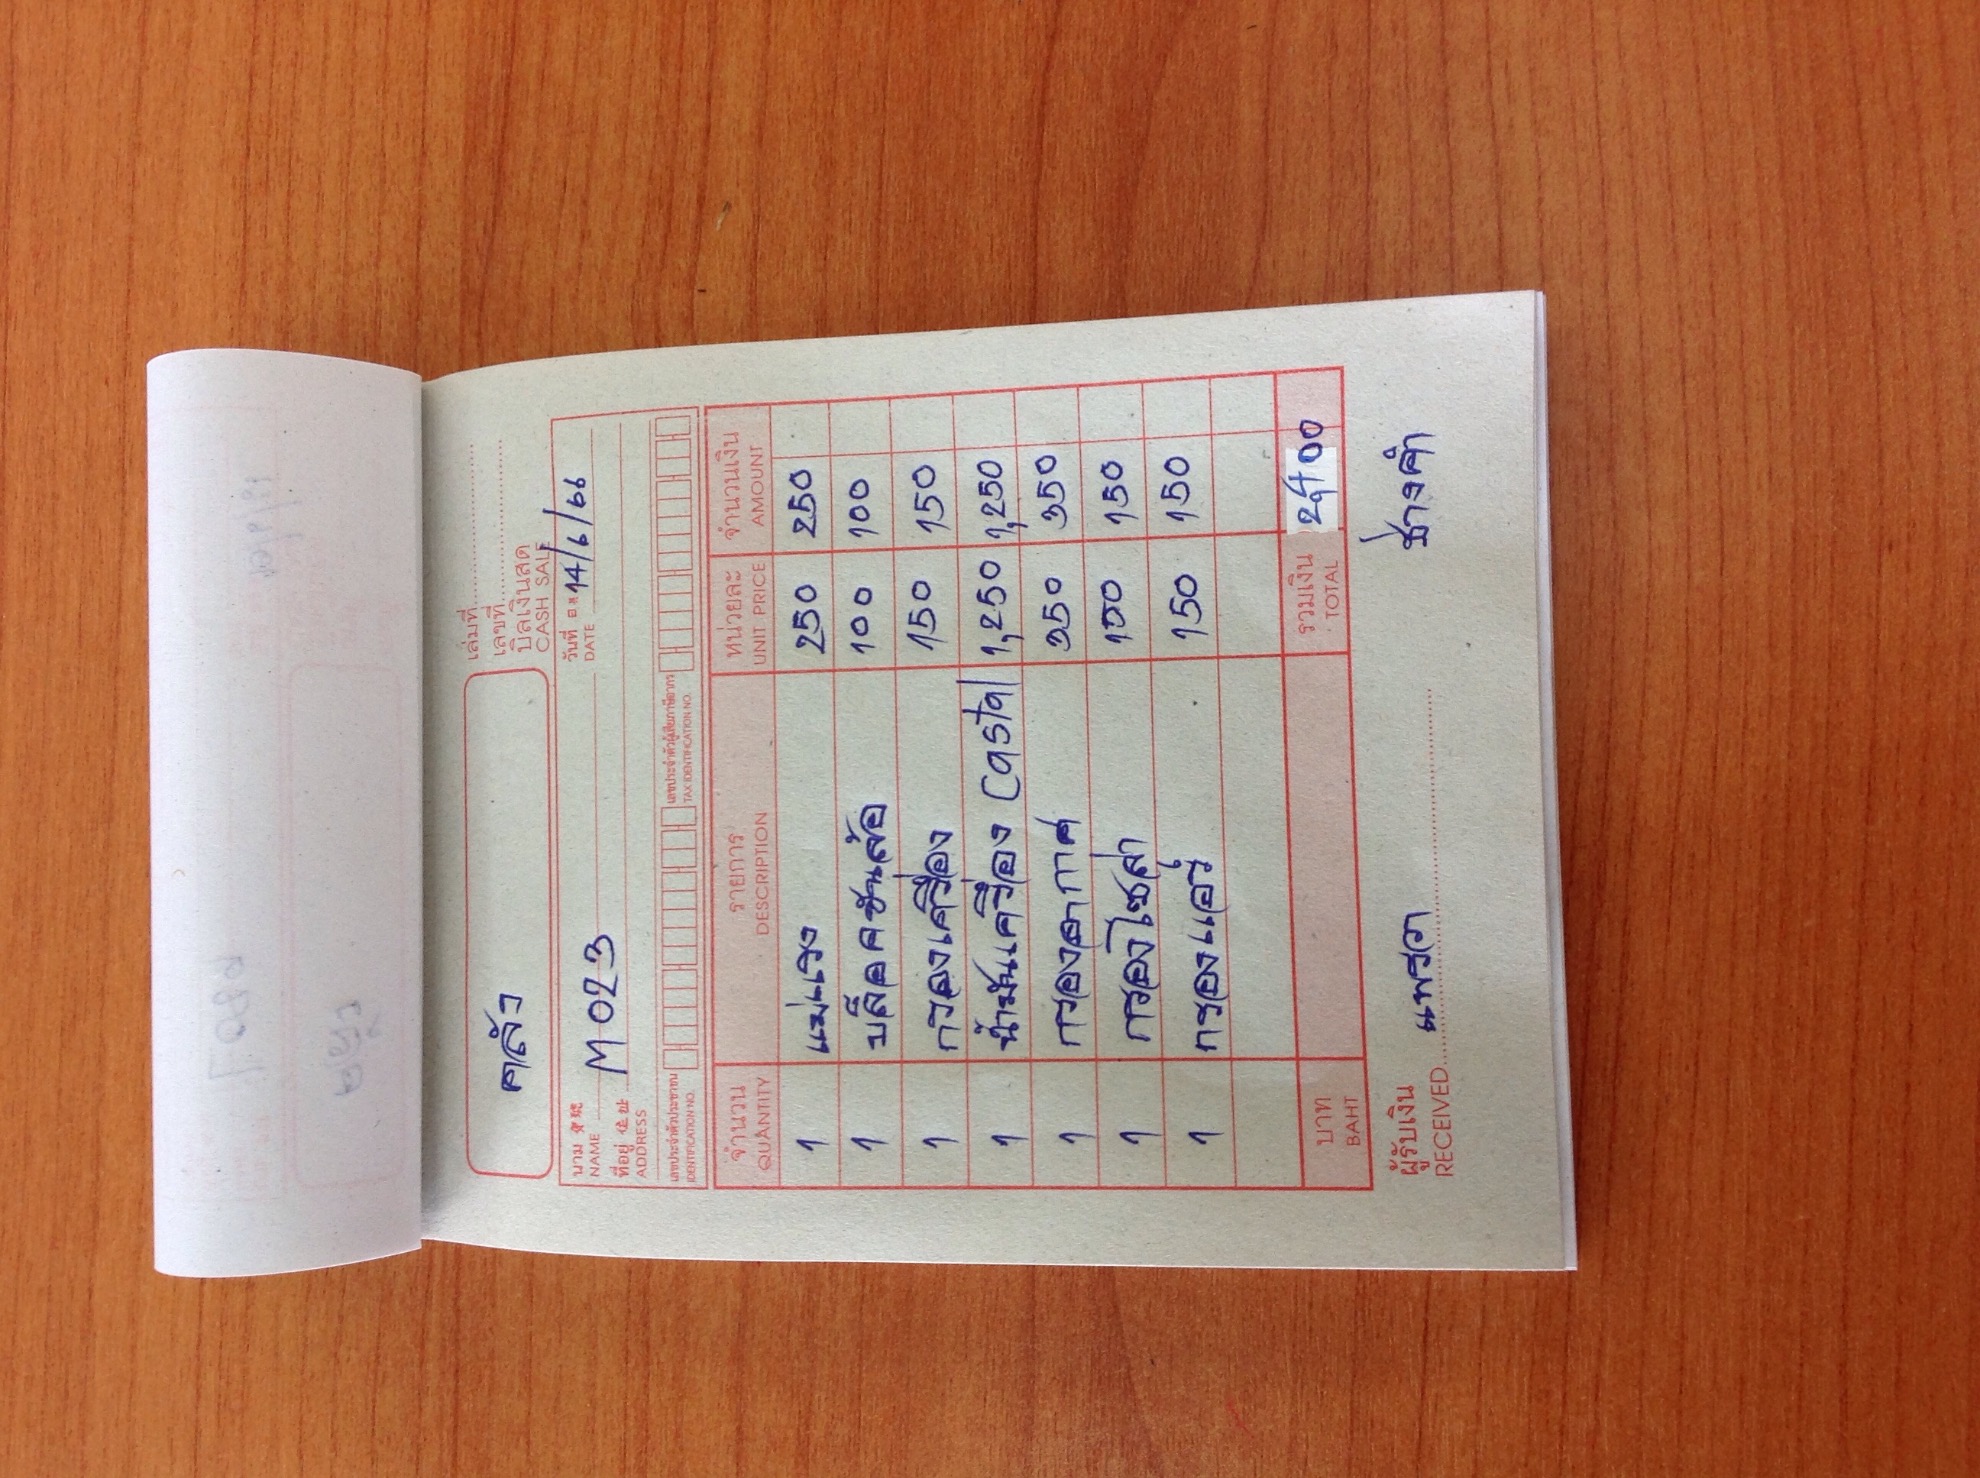 เล่มที่
เลขที่
คลัง บิลเงินสด
CASH SALE
นาม M 023 วันที่ 14/6/66
NAME DATE
ที่อยู่
ADDRESS
เลขประจำตัวประชาชน เลขประจำตัวผู้เสียภาษีอากร
IDENTIFICATION NO. TAX IDENTIFICATION NO.
จำนวน รายการ หน่วยละ จำนวนเงิน
QUANTITY DESCRIPTION UNIT PRICE AMOUNT
1 แม่แรง 250 250
1 บล็อคขันล้อ 100 100
1 กรองเครื่อง 150 150
1 น้ำมันเครื่อง Castal 1,250 1,250
1 กรองอากาศ 350 350
1 กรองโซล่า 150
1 กรองแอร์ 150 150
บาท รวมเงิน 2400
BAHT TOTAL
ผู้รับเงิน แพรวา ช่างคำ
RECEIVED